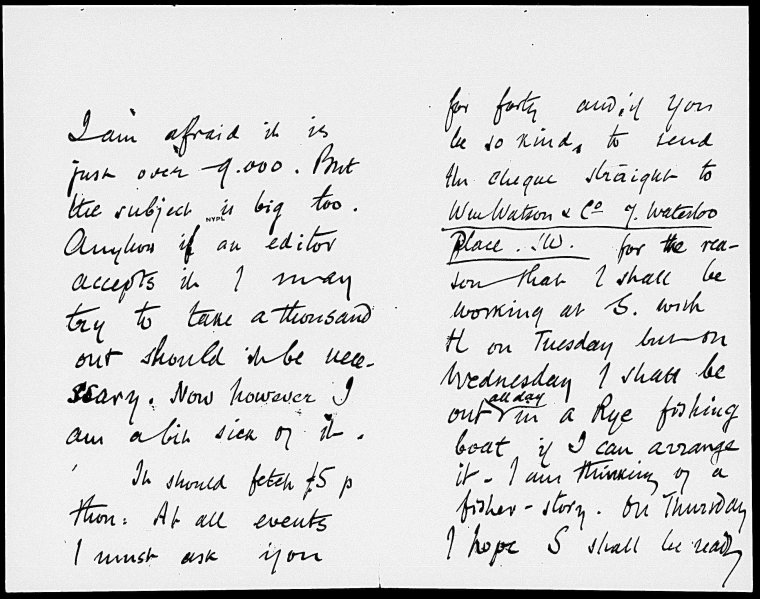 I am afraid it is
just over 9.000. But
the subject is big too.
NYPL
Anyhow if an editor
accepts it I may
try to take a thousand
out should it be nece-
ssary. Now however I
am a bit sick of it.
It should fetch £5 p
thou: At all events
I must ask you
for forty and, if you
be so kind, to send
the cheque straight to
Wm Watson & Co 7. Waterloo
Place. SW. for the rea-
son that I shall be
working at S. with
H on Tuesday but on
Wednesday I shall be
all day
out in a Rye fishing
boat if I can arrange
it. I am thinking of a
fisher-story. On Thursday
I hope S shall be ready